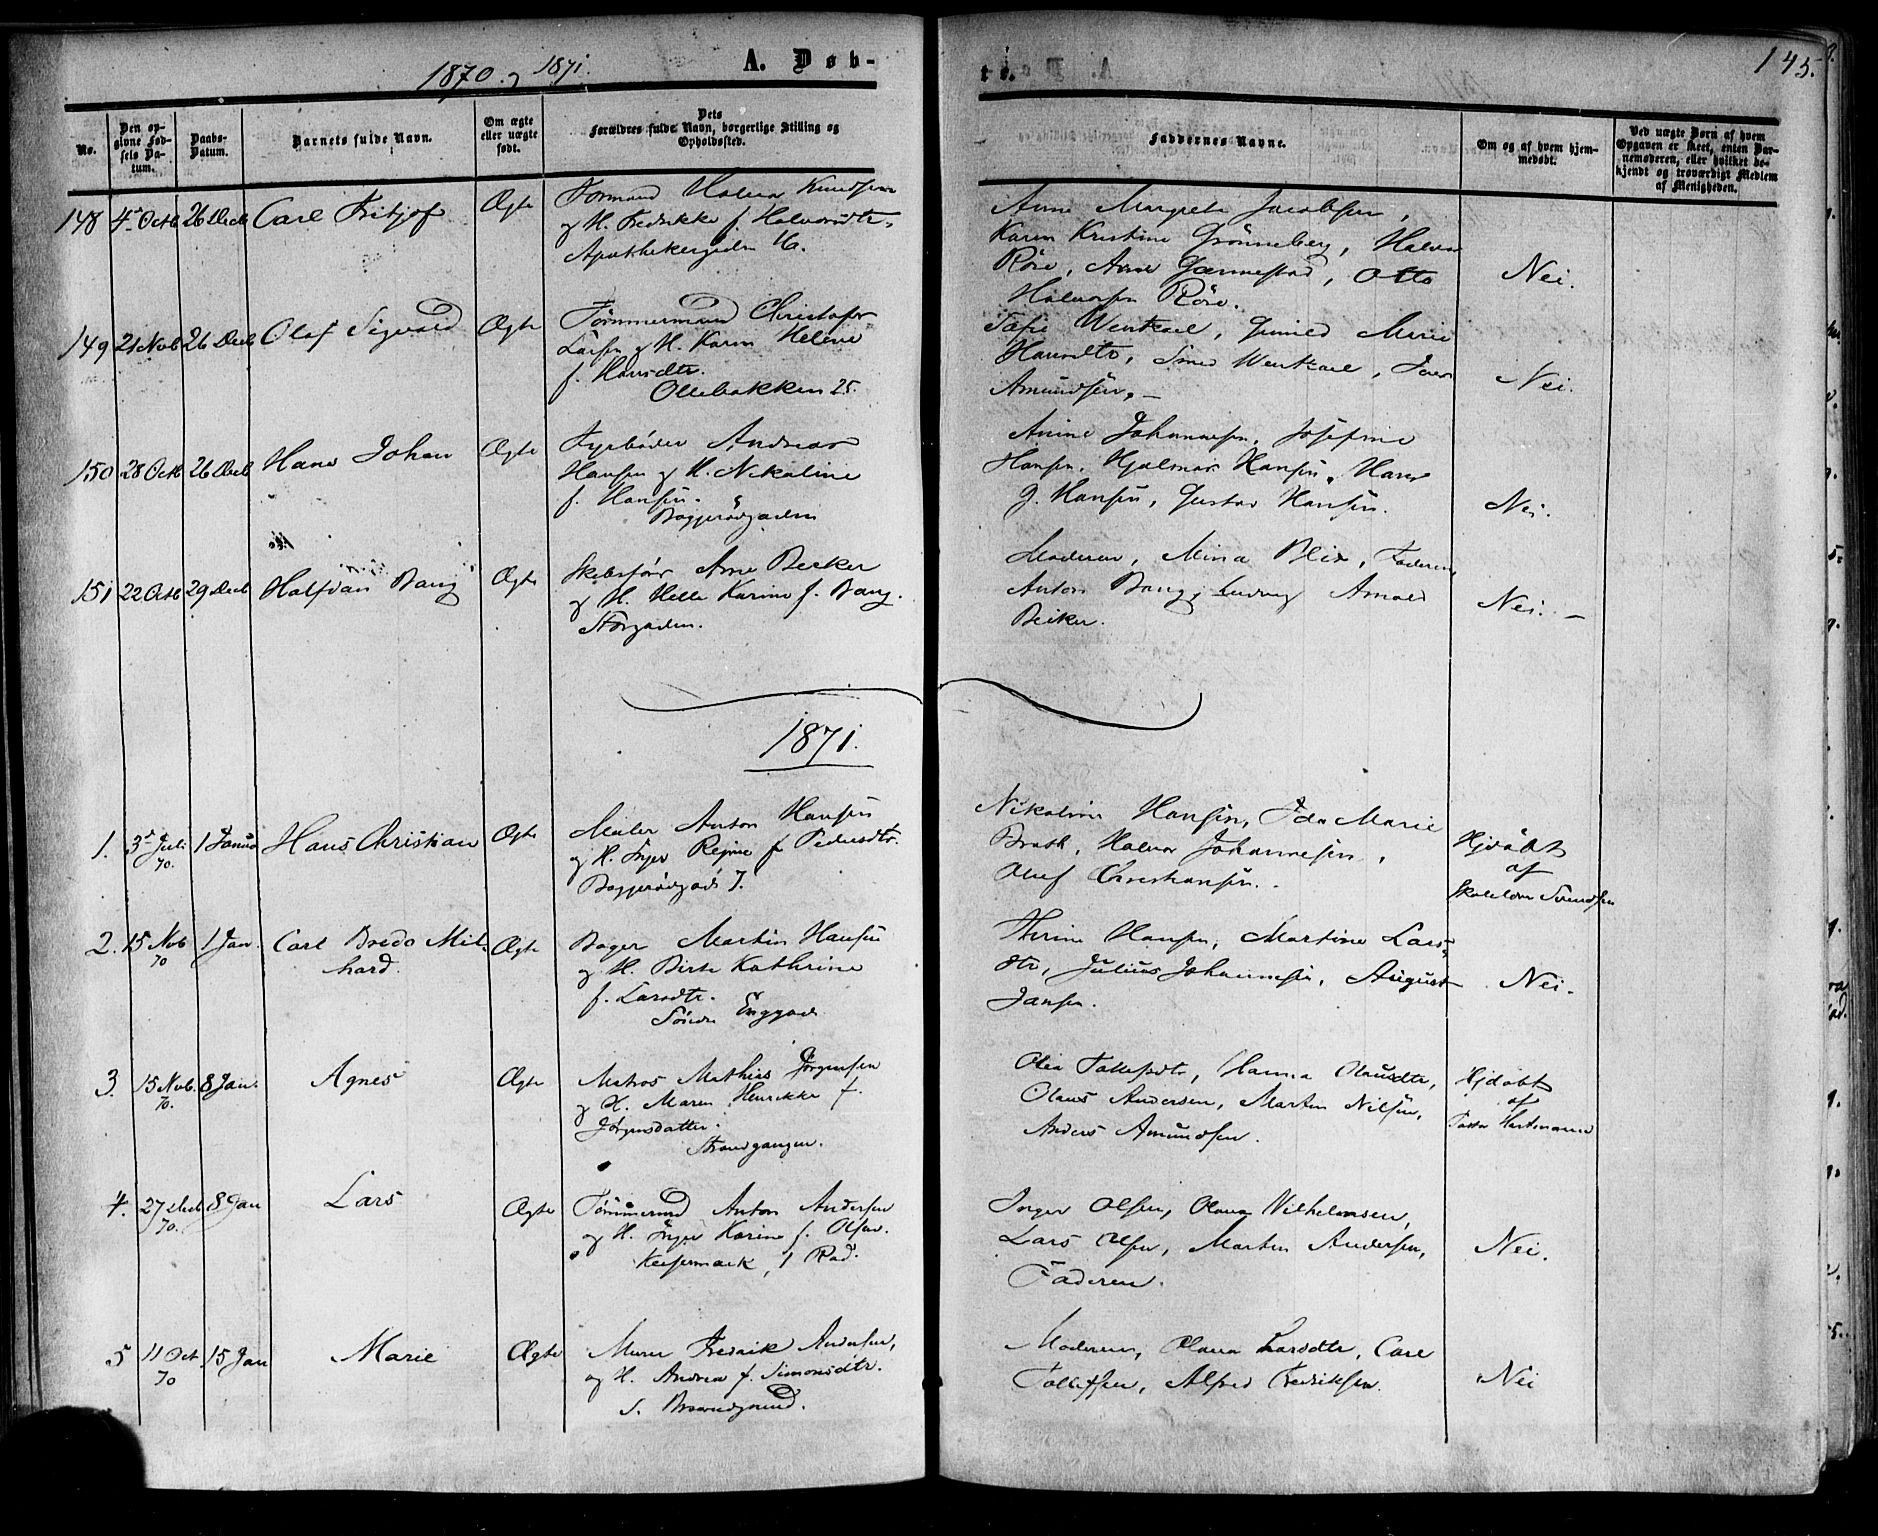 1870 og 1871.
A. Døb-
te.
145.
No.
Den op-
givne Fød-
sels Da-
tum.
Daabs-
Datum.
Barnets fulde Navn.
Om ægte
eller uægte
født.
Dets
Forældres fulde Navn, borgerlige Stilling og
Opholdssted.
Faddernes Navne.
Om og af hvem hjem-
medøbt.
Ved uægte Børn af hvem
Opgaven er skeet, enten Bar-
nemoderen, eller hvilket be-
kjendt og troværdigt Medlem
af Menigheden.
148 4 Octb 26 Decb Carl Fritjof Ægte
Formand Halvor Knudsen
og H. Fredrikke f. Halvorsdtr.
Apothekergaden 16.
Anne Margrete Jacobsen,
Karen Kristine Grønneberg, Halvor
Röre, Arne Gannestad, Otto
Halvorsen Röre.
Nei.
149 21 Novb 26 Decb Olaf Sigvald Ægte
Tømmermand Christofer
Larsen og H. Karen Helene
f. Hansdtr.
Ollebakken 25.
Marie
Hansdtr,
Amundsen. –
Nei.
150 28 Octb 26 Decb Hans Johan Ægte
Fyrbøder Andreas
Hansen og H. Nikoline
f. Hansen.
Baggerødgaden
Anine Johannesen, Josefine
Hansen, Hjalmar Hansen, Hans
G. Hansen, Gustav Hansen.
Nei.
151 22 Octb 29 Decb Halfdan Bang Ægte
Skibsfører Arne Becker
og H. Helle Karine f. Bang.
Storgaden.
Moderen, Mina Blix, Faderen,
Anton Bang, Ludvig Arnold
Becker.
Nei. –
1871.
1. 3 Juli 70. 1 Januar Hans Christian Ægte
Maler Anton Hansen
og H. Inger Regine f Pedersdtr.
Baggerødgad 7.
Nikoline Hansen, Ida Marie
Brath, Halvor Johannesen,
Oluf Christiansen.
Hjdøbt
af
Skolelærer Svendsen
2. 15 Nvb 70 1 Jan. Carl Bredo Mel-
hard.
Ægte
Bager Martin Hansen
og H. Birte Kathrine
f. Larsdtr.
Søndre Enggade
Thrine Hansen, Martine Lars-
dtr, Julius Johannesen, August
Jansen.
Nei.
3. 15 Nvb. 70. 8 Jan. Agnes Ægte
Matros Mathias Jørgensen
og H. Maren Henrikke f.
Jørgensdatter.
Strandgangen.
Olea Tollefsdtr, Hanna Olausdtr,
Olaus Andersen, Martin Nilsen,
Anders Amundsen.
Hjdøbt
af
Pastor Hartmann
4. 27 Decb 70. 8 Jan Lars Ægte
Tømmermd Anton Andersen
og H. Inger Karine f. Olsen.
Keysermark, 1 Rad.
Inger Olsen, Olava Vilhelmsen,
Lars Olsen, Martin Andersen,
Faderen.
Nei.
5 11 Oct. 70 15 Jan Marie Ægte
Murer Fredrik Andersen,
og H. Andrea f. Simonsdtr.
S. Brandgrund.
Moderen, Olava Larsdtr, Carl
Tollefsen, Alfred Fredriksen.
Nei